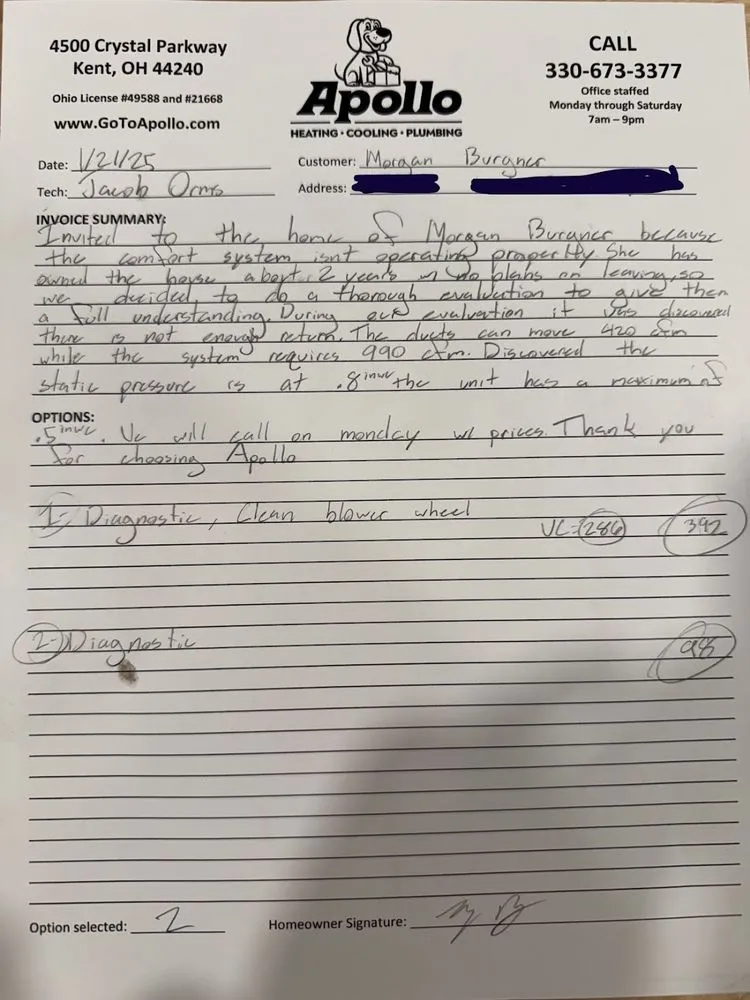 4500 Crystal Parkway
Kent, OH 44240
Ohio License #49588 and #21668
www.GoToApollo.com
Apollo
HEATING • COOLING • PLUMBING
CALL
330-673-3377
Office staffed
Monday through Saturday
7am – 9pm
Date: 1/21/25
Customer: Morgan Burgner
Tech: Jacob Orms
Address:
INVOICE SUMMARY:
Invited to the home of Morgan Burgner because
the comfort system isnt operating properly. She has
owned the house about 2 years w no plans on leaving, so
we decided to do a thorough evaluation to give them
a full understanding. During our evaluation it was discovered
there is not enough return. The ducts can move 420 cfm
while the system requires 990 cfm. Discovered the
static pressure is at .8 inwc the unit has a maximum of
OPTIONS:
.5 inwc. We will call on monday w/ prices. Thank you
for choosing Apollo
1- Diagnostic, Clean blower wheel
VC=286 392
2- Diagnostic 98
Option selected: 2
Homeowner Signature: